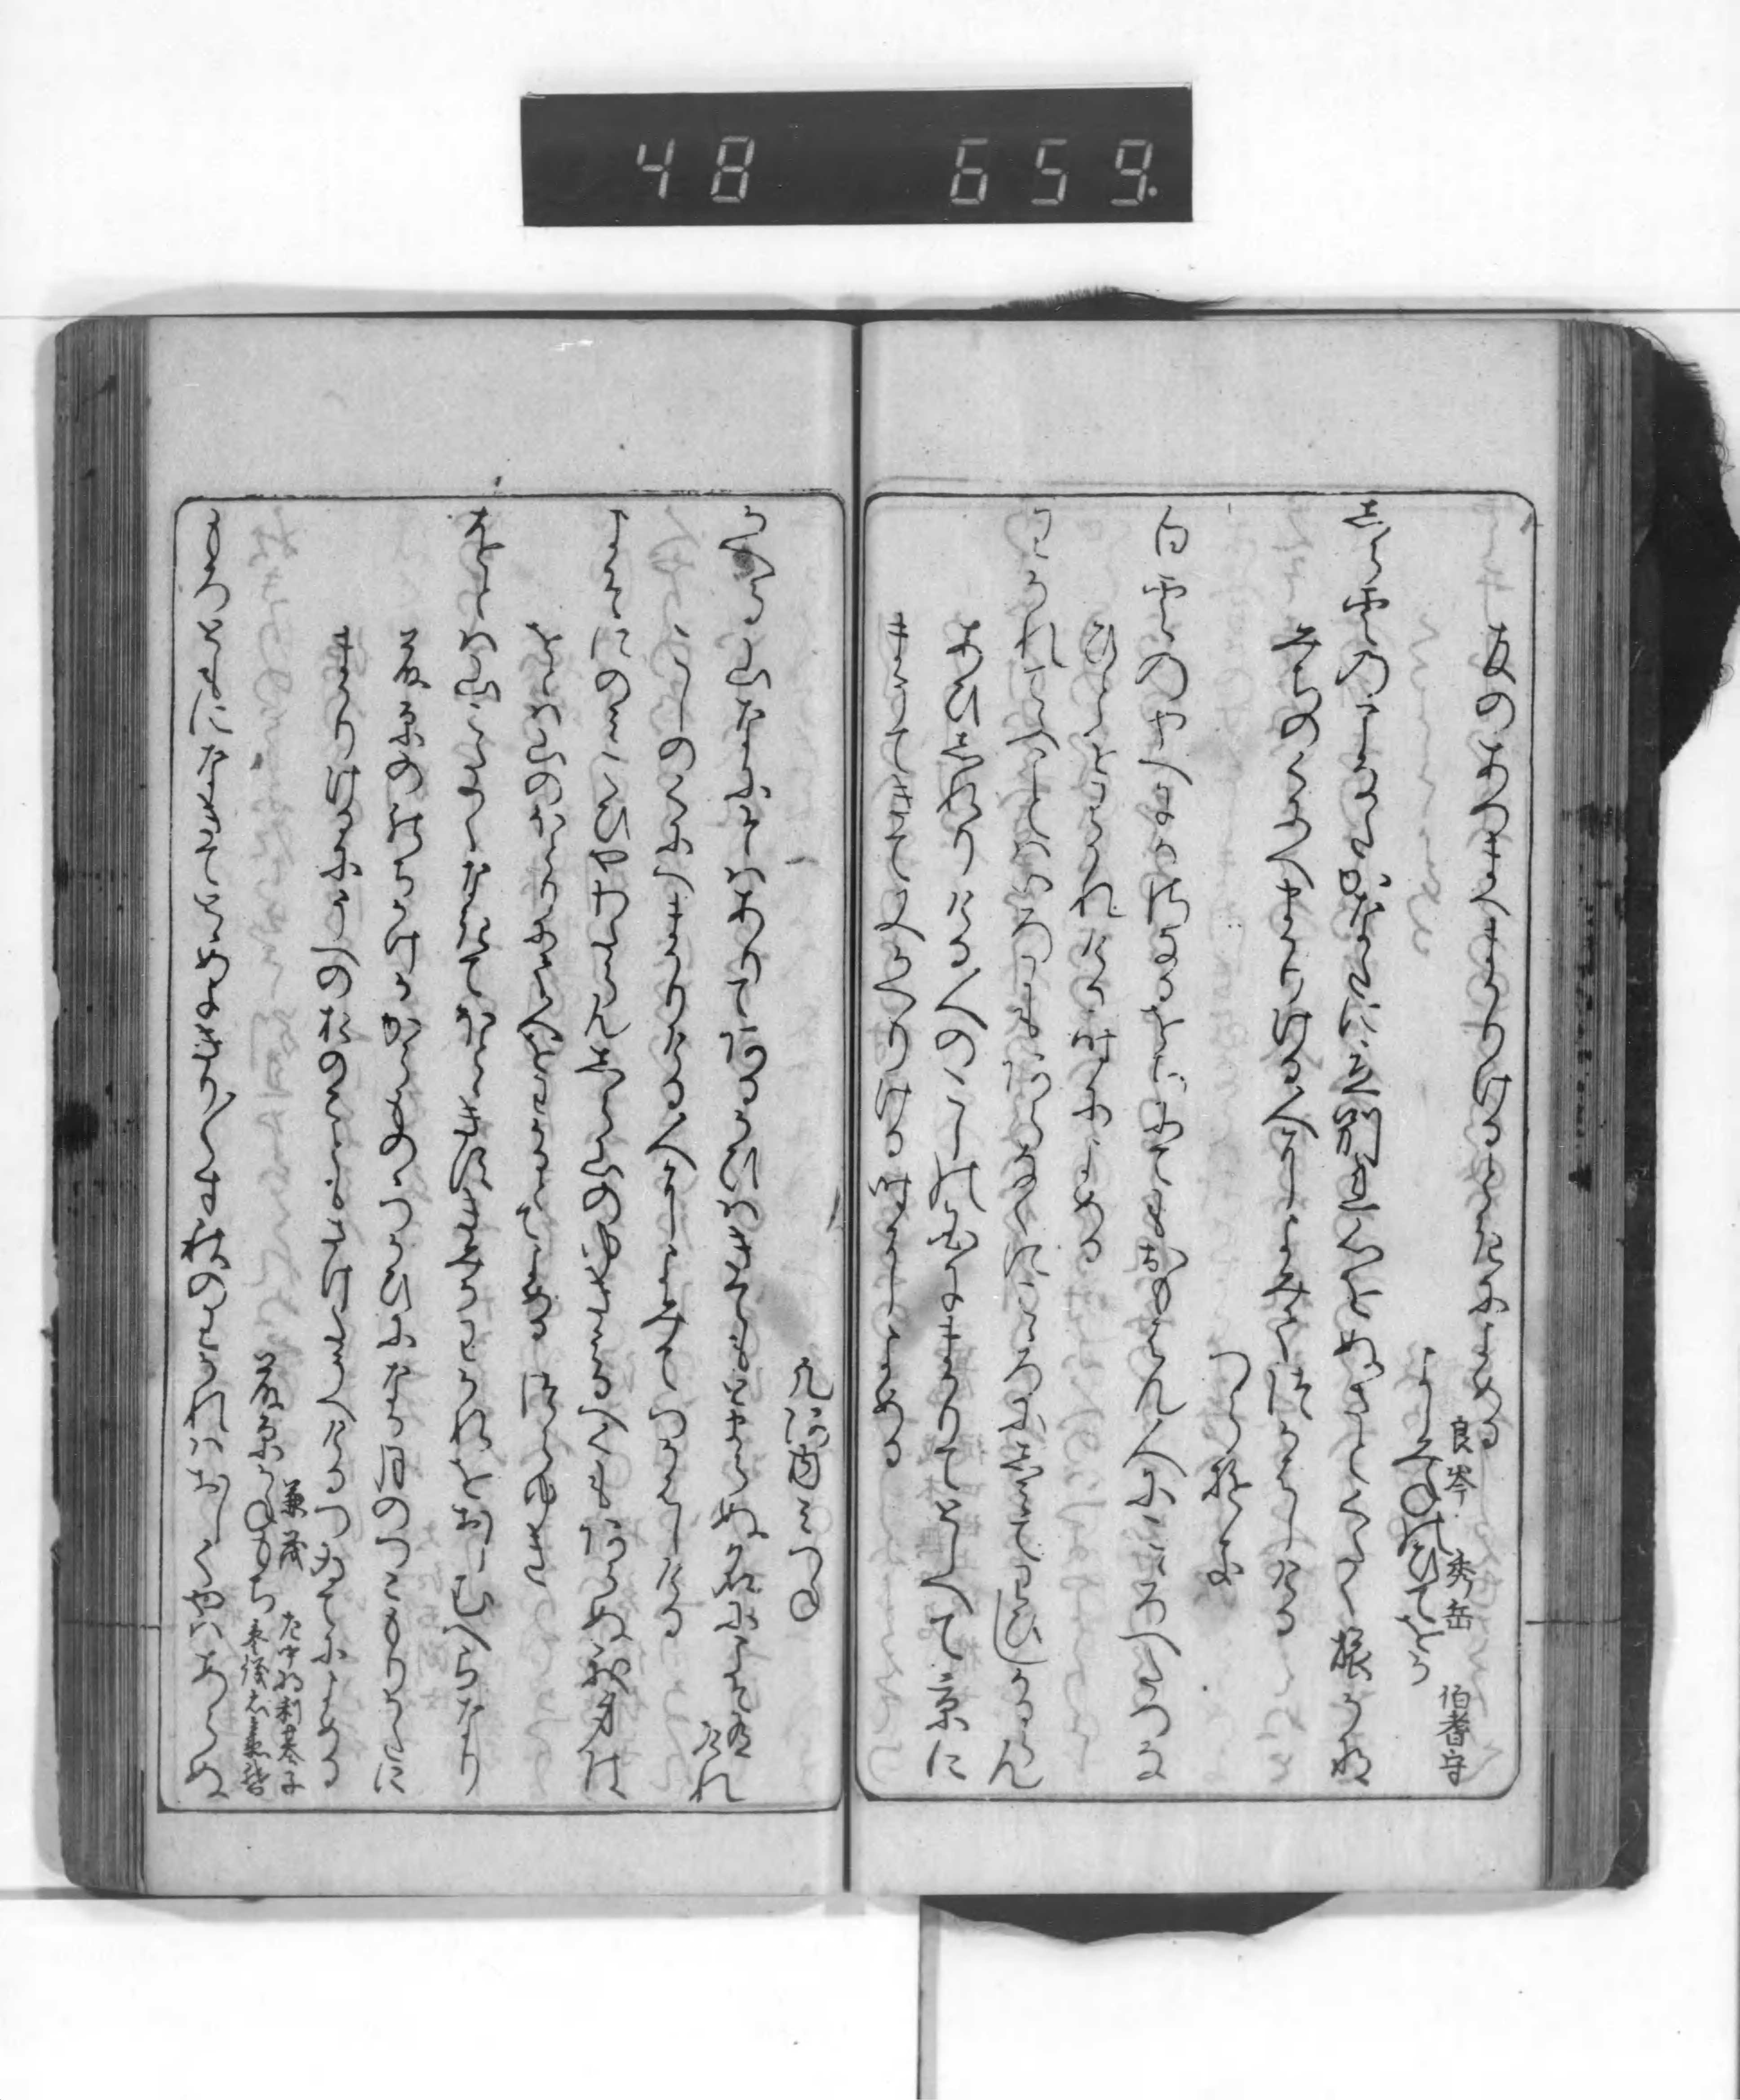 友のあつまへまかりけるときによめる
良岑 秀岳 伯耆守
よしみねのひてをか
しら雲のこなたかなたに立別れ心をぬさとくたく旅かな
みちのくにへまかりける人によみてつかはしける
つらゆき
白雲のやへにかさなるをちにてもおもはん人に心へたつな
ひとをわかれける時によめる
わかれてふことはいろにもあらなくにこころにしみてわひしかるらん
あひしれりける人のこしの国にまかりてとしへて京に
まうてきて又かへりける時によめる
凡河内みつね
かへる山なにそはありてあるかひはきてもとまらぬ名にこそ有
けれ
こしのくにへまかりける人によみてつかはしける
よそにのみこひやわたらんしら山のゆきみるへくもあらぬわか身は
をとは山のほとりにて人をわかるとてよめる つらゆき
をとは山こたかくなきてほとときす君かわかれをおしむへらなり
藤原ののちかけかからもののつかひになか月のつこもりかたに
まかりけるにうへのおのこともさけたうへけるつゐてによめる
兼茂 左中将利基子
藤原かねもち 参議右兵衛督
もろともになきてととめよきりきりす秋のわかれはおしくやはあらぬ